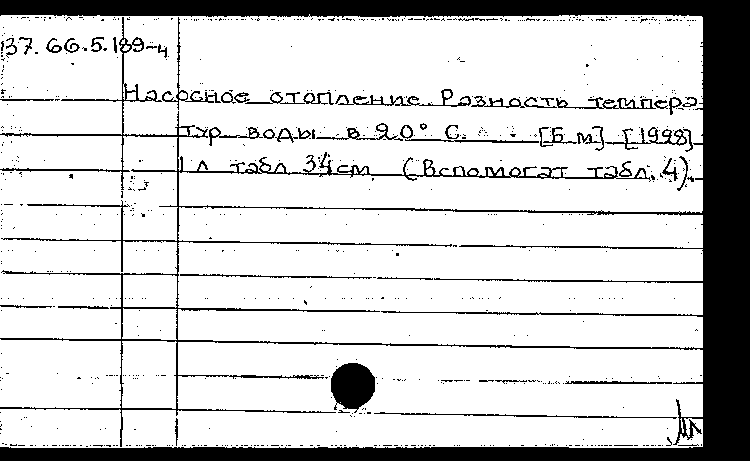 37.66.5.189-4
Насосное отопление. Разность темпера
тур воды в 20° С. [Б.м] [1928]
1 л табл 34см (Вспомогат табл. 4).